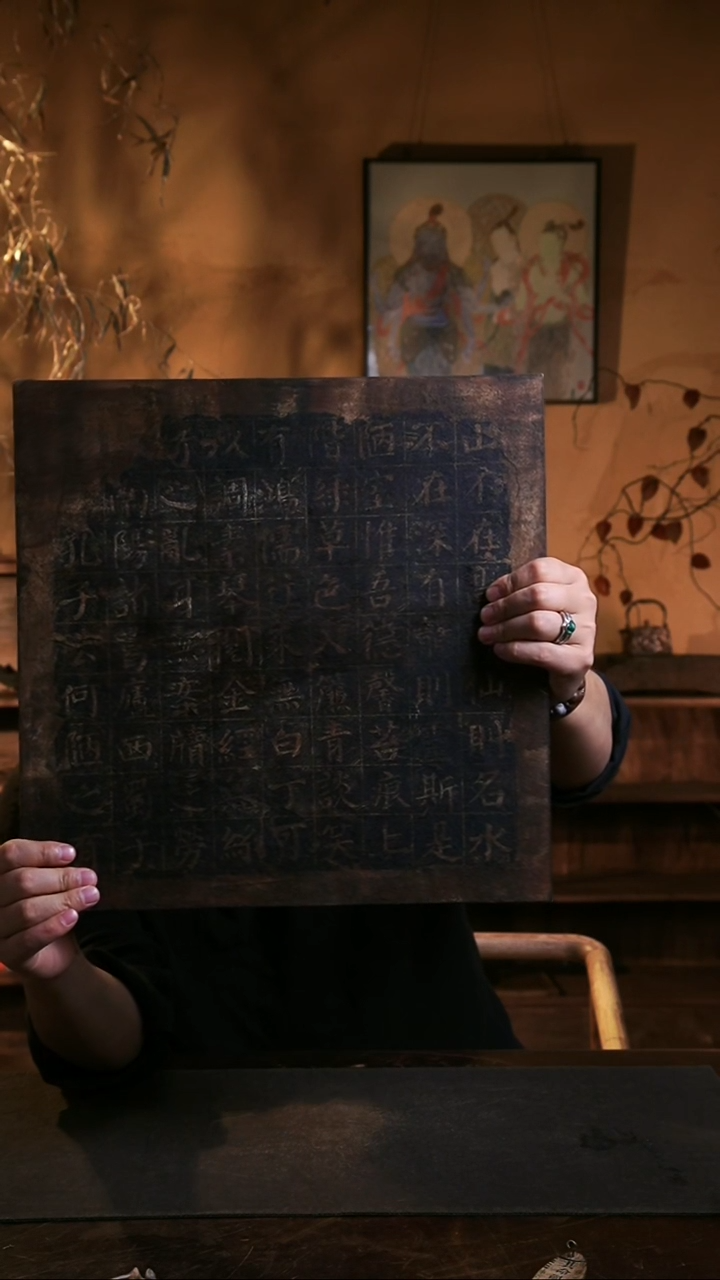 山不在仙則名水
不在深有龍則靈斯是
陋室惟吾德馨苔痕上
階緑草色入簾青談笑
有鴻儒往來無白丁可
以調素琴閱金經無絲
竹之亂耳無案牘之勞
南陽諸葛廬西蜀子
孔子云何陋之有